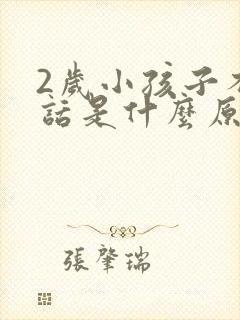 2歲小孩子
話是什麼原
張肇瑞